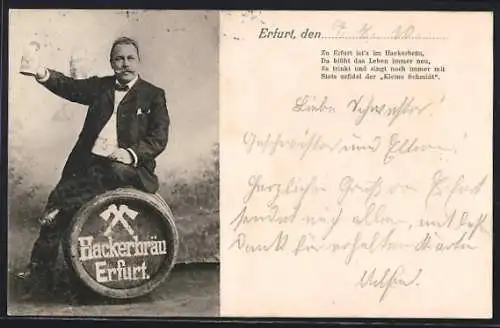 Hackerbräu
Erfurt.
Erfurt, den
Zu Erfurt ist's im Hackerbräu,
Da blüht das Leben immer neu,
Es trinkt und singt noch immer mit
Stets urfidel der „Kleine Schmidt".
Liebe Schwester!
Geschwister und Eltern!
Herzlichen Gruß von Erfurt
sendet Euch allen, mit best
Dank für erhaltene Karte